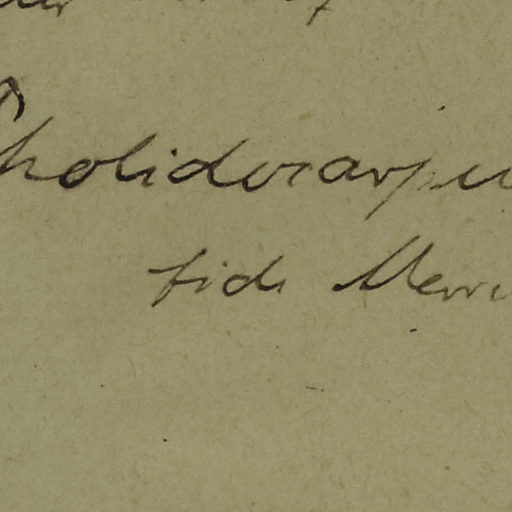 Pholidocarpu
fide Merri